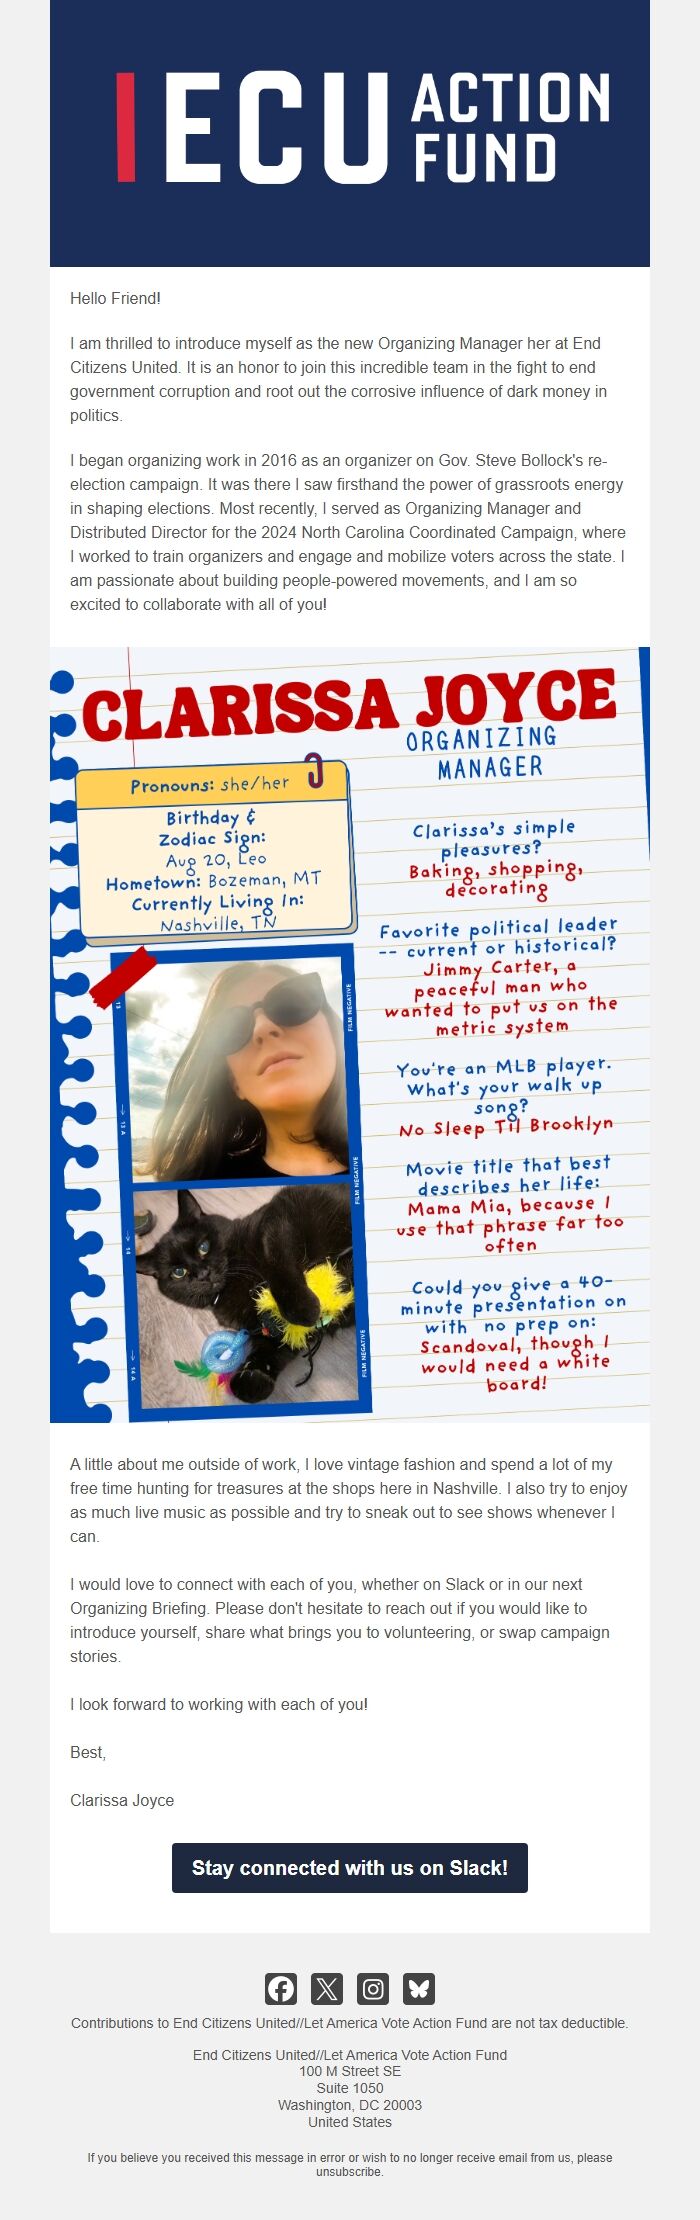 ECU ACTION
FUND
Hello Friend!
I am thrilled to introduce myself as the new Organizing Manager her at End
Citizens United. It is an honor to join this incredible team in the fight to end
government corruption and root out the corrosive influence of dark money in
politics.
I began organizing work in 2016 as an organizer on Gov. Steve Bollock's re-
election campaign. It was there I saw firsthand the power of grassroots energy
in shaping elections. Most recently, I served as Organizing Manager and
Distributed Director for the 2024 North Carolina Coordinated Campaign, where
I worked to train organizers and engage and mobilize voters across the state. I
am passionate about building people-powered movements, and I am so
excited to collaborate with all of you!
CLARISSA JOYCE
ORGANIZING
MANAGER
Pronouns: she/her
Birthday &
Zodiac Sign:
Aug 20, Leo
Hometown: Bozeman, MT
Currently Living In:
Nashville, TN
13
FILM NEGATIVE
→ 13 A
FILM NEGATIVE
→ 14
FILM NEGATIVE
→ 14 A
Clarissa's simple
pleasures?
Baking, shopping,
decorating
Favorite political leader
-- current or historical?
Jimmy Carter, a
peaceful man who
wanted to put us on the
metric system
You're an MLB player.
What's your walk up
song?
No Sleep Til Brooklyn
Movie title that best
describes her life:
Mama Mia, because I
use that phrase far too
often
Could you give a 40-
minute presentation on
with no prep on:
Scandoval, though I
would need a white
board!
A little about me outside of work, I love vintage fashion and spend a lot of my
free time hunting for treasures at the shops here in Nashville. I also try to enjoy
as much live music as possible and try to sneak out to see shows whenever I
can.
I would love to connect with each of you, whether on Slack or in our next
Organizing Briefing. Please don't hesitate to reach out if you would like to
introduce yourself, share what brings you to volunteering, or swap campaign
stories.
I look forward to working with each of you!
Best,
Clarissa Joyce
Stay connected with us on Slack!
Contributions to End Citizens United//Let America Vote Action Fund are not tax deductible.
End Citizens United//Let America Vote Action Fund
100 M Street SE
Suite 1050
Washington, DC 20003
United States
If you believe you received this message in error or wish to no longer receive email from us, please
unsubscribe.